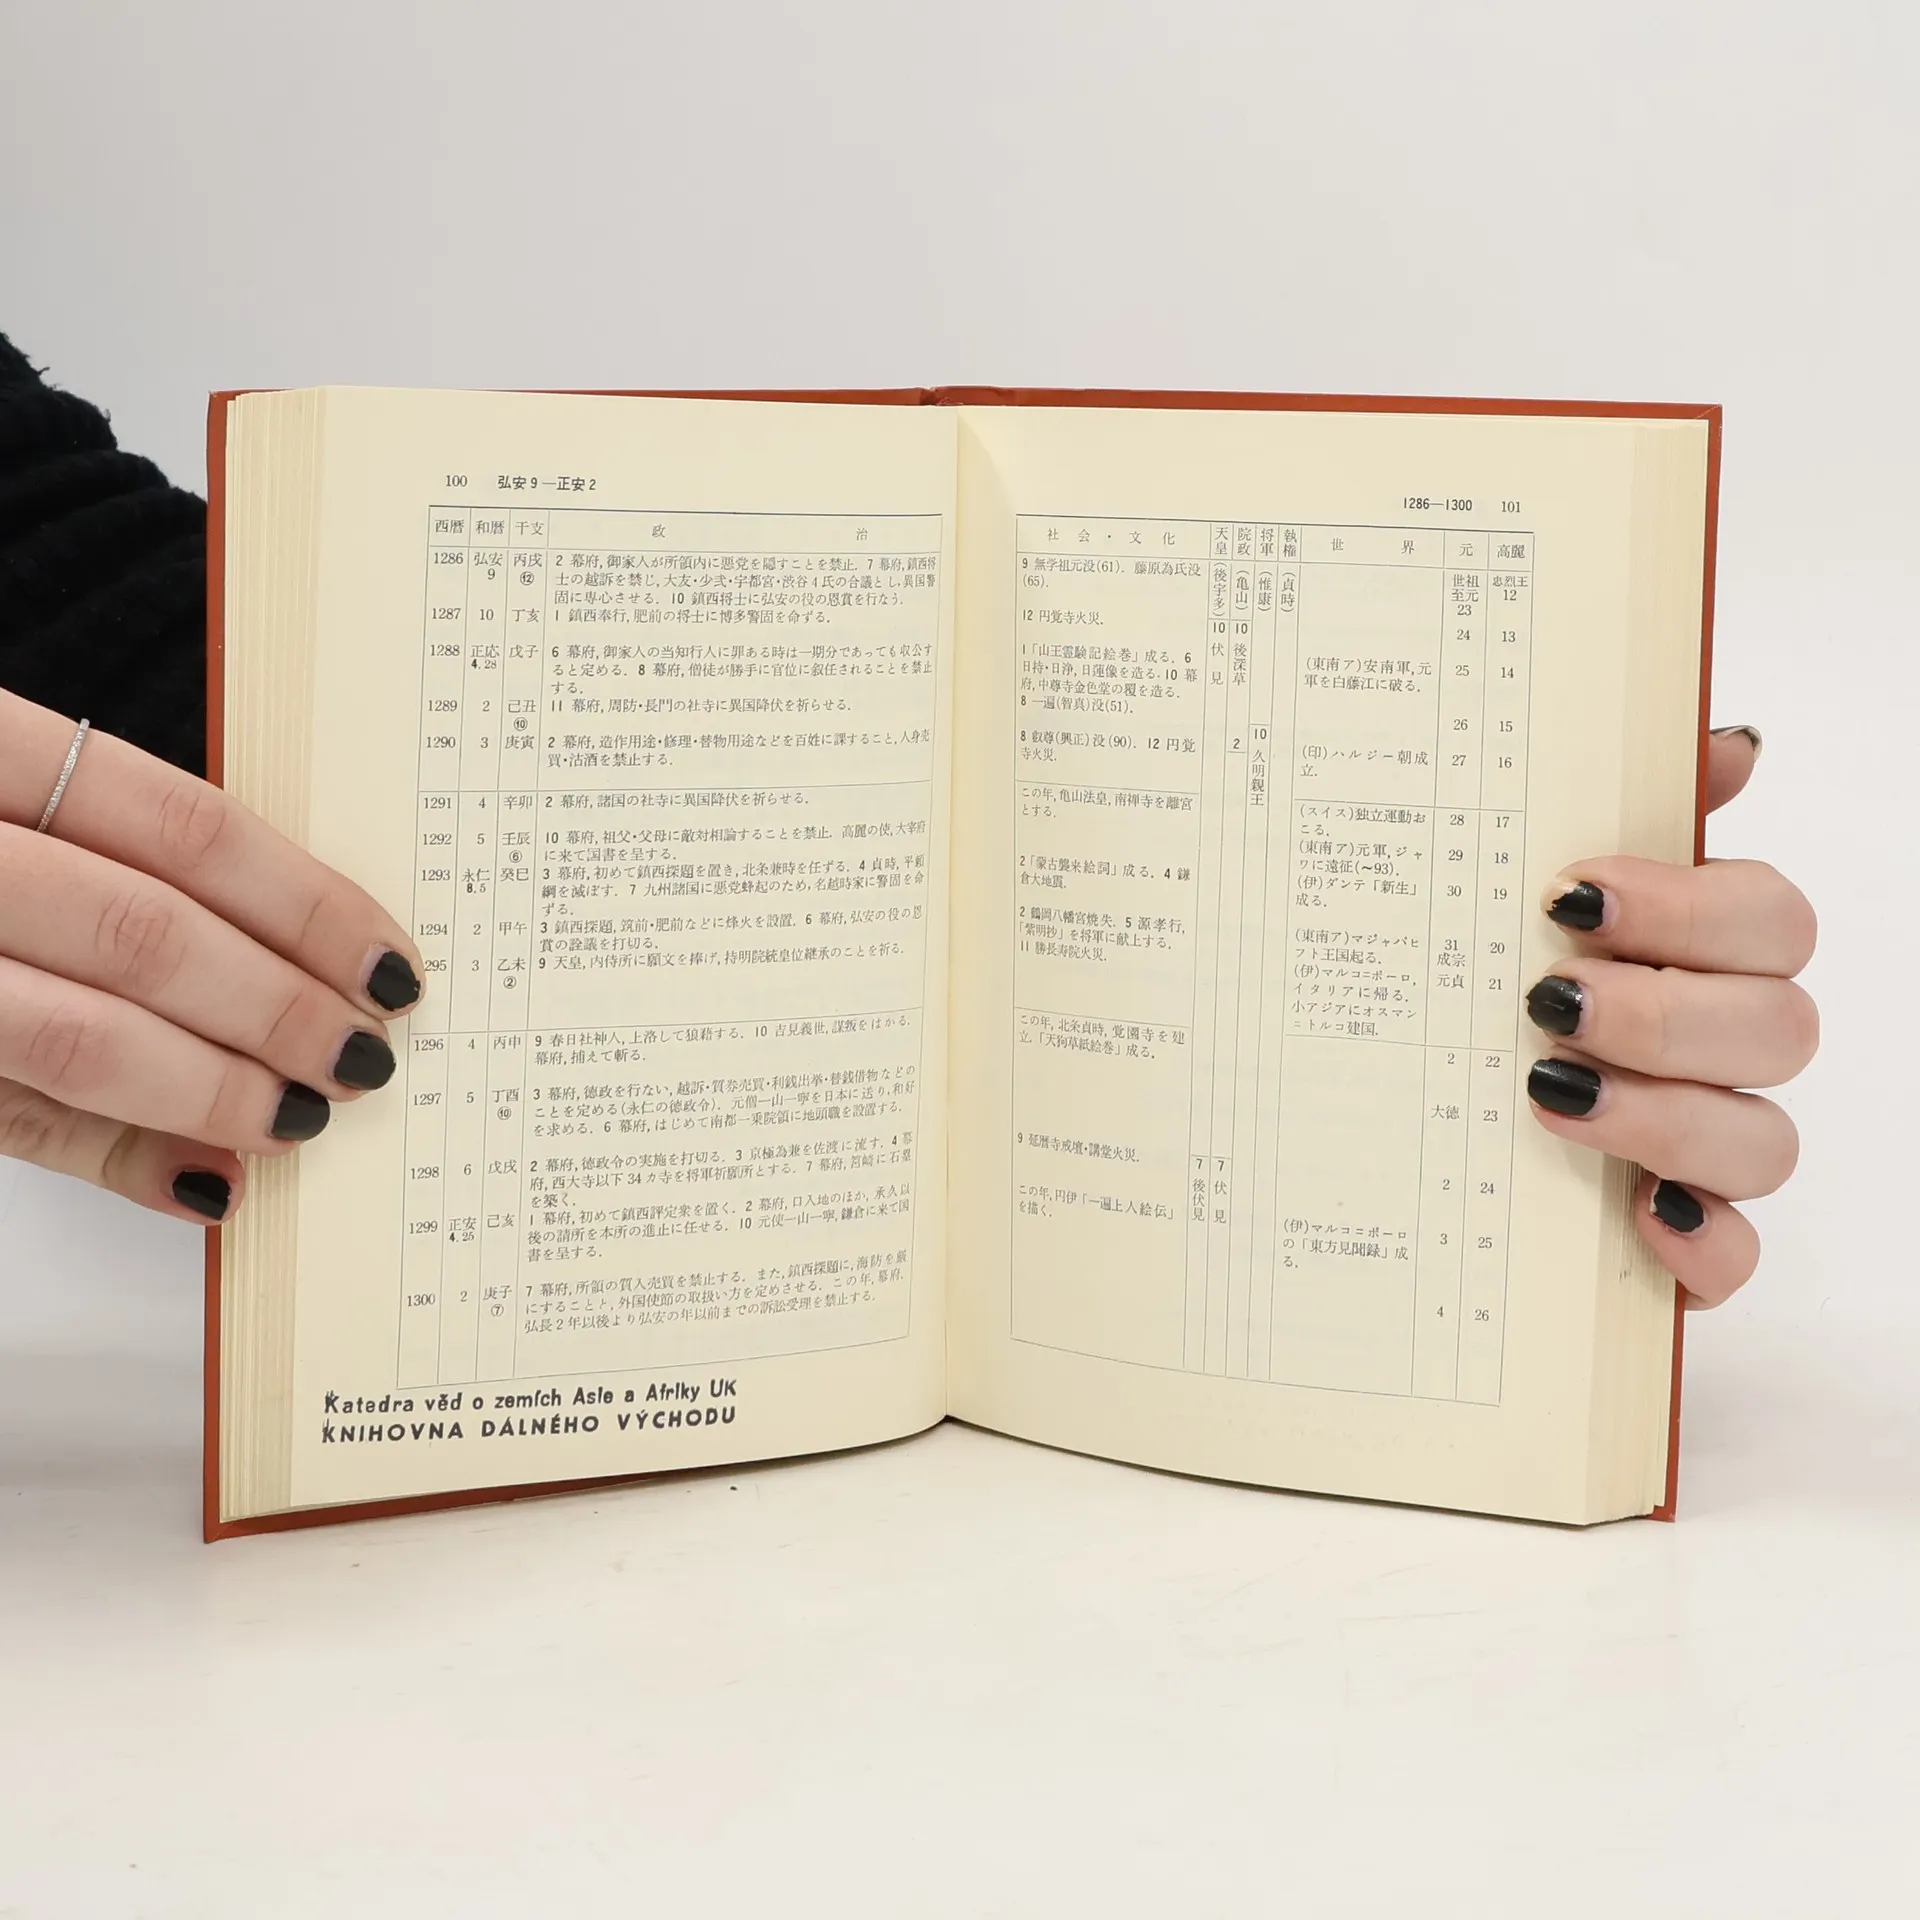 100 弘安9—正安2
西暦 和暦 干支 政 治
1286 弘安9 丙戌⑫ 2 幕府,御家人が所領内に悪党を隠すことを禁止. 7 幕府,鎮西将
士の越訴を禁じ,大友・少弐・宇都宮・渋谷4氏の合議とし,異国警
固に専心させる. 10 鎮西将士に弘安の役の恩賞を行なう.
1287 10 丁亥 1 鎮西奉行,肥前の将士に博多警固を命ずる.
1288 正応4.28 戊子 6 幕府,御家人の当知行人に罪ある時は一期分であっても収公す
ると定める. 8 幕府,僧徒が勝手に官位に叙任されることを禁止
する.
1289 2 己丑⑩ 11 幕府,周防・長門の社寺に異国降伏を祈らせる.
1290 3 庚寅 2 幕府,造作用途・修理・替物用途などを百姓に課すること,人身売
買・沽酒を禁止する.
1291 4 辛卯 2 幕府,諸国の社寺に異国降伏を祈らせる.
1292 5 壬辰⑥ 10 幕府,祖父・父母に敵対相論することを禁止. 高麗の使,大宰府
に来て国書を呈する.
1293 永仁8.5 癸巳 3 幕府,初めて鎮西探題を置き,北条兼時を任ずる. 4 貞時,平頼
綱を滅ぼす. 7 九州諸国に悪党蜂起のため,名越時家に警固を命
ずる.
1294 2 甲午 3 鎮西探題,筑前・肥前などに烽火を設置. 6 幕府,弘安の役の恩
賞の詮議を打切る.
295 3 乙未② 9 天皇,内侍所に願文を捧げ,持明院統皇位継承のことを祈る.
1296 4 丙申 9 春日社神人,上洛して狼藉する. 10 吉見義世,謀叛をはかる.
幕府,捕えて斬る.
1297 5 丁酉⑩ 3 幕府,徳政を行ない,越訴・質券売買・利銭出挙・替銭借物などの
ことを定める(永仁の徳政令). 元僧一山一寧を日本に送り,和好
を求める. 6 幕府,はじめて南都一乗院領に地頭職を設置する.
1298 6 戊戌 2 幕府,徳政令の実施を打切る. 3 京極為兼を佐渡に流す. 4 幕
府,西大寺以下34カ寺を将軍祈願所とする. 7 幕府,筥崎に石塁
を築く.
1299 正安4.25 己亥 1 幕府,初めて鎮西評定衆を置く. 2 幕府,口入地のほか,承久以
後の請所を本所の進止に任せる. 10 元使一山一寧,鎌倉に来て国
書を呈する.
1300 2 庚子⑦ 7 幕府,所領の質入売買を禁止する. また,鎮西探題に,海防を厳
にすることと,外国使節の取扱い方を定めさせる. この年,幕府,
弘長2年以後より弘安の年以前までの訴訟受理を禁止する.
Katedra věd o zemích Asie a Afriky UK
KNIHOVNA DÁLNÉHO VÝCHODU
1286—1300 101
社 会 ・ 文 化 天皇 院政 将軍 執権 世 界 元 高麗
9 無学祖元没(61). 藤原為氏没
(65).
12 円覚寺火災.
1「山王霊験記絵巻」成る. 6
日持・日浄,日蓮像を造る. 10 幕
府,中尊寺金色堂の覆を造る.
8 一遍(智真)没(51).
8 叡尊(興正)没(90). 12 円覚
寺火災.
この年,亀山法皇,南禅寺を離宮
とする.
2「蒙古襲来絵詞」成る. 4 鎌
倉大地震.
2 鶴岡八幡宮焼失. 5 源孝行,
「紫明抄」を将軍に献上する.
11 勝長寿院火災.
この年,北条貞時,覚園寺を建
立.「天狗草紙絵巻」成る.
9 延暦寺戒壇・講堂火災.
この年,円伊「一遍上人絵伝」
を描く.
(後宇多)
10
伏見
7
後伏見
(亀山)
10
後深草
2
7
伏見
(惟康)
10
久明親王
(貞時)
(東南ア)安南軍,元
軍を白藤江に破る.
(印)ハルジー朝成
立.
(スイス)独立運動お
こる.
(東南ア)元軍,ジャ
ワに遠征(~93).
(伊)ダンテ「新生」
成る.
(東南ア)マジャパヒ
フト王国起る.
(伊)マルコ=ポーロ,
イタリアに帰る.
小アジアにオスマン
=トルコ建国.
(伊)マルコ=ポーロ
の「東方見聞録」成
る.
世祖 忠烈王
至元 12
23
24 13
25 14
26 15
27 16
28 17
29 18
30 19
31 20
成宗
元貞 21
2 22
大徳 23
2 24
3 25
4 26